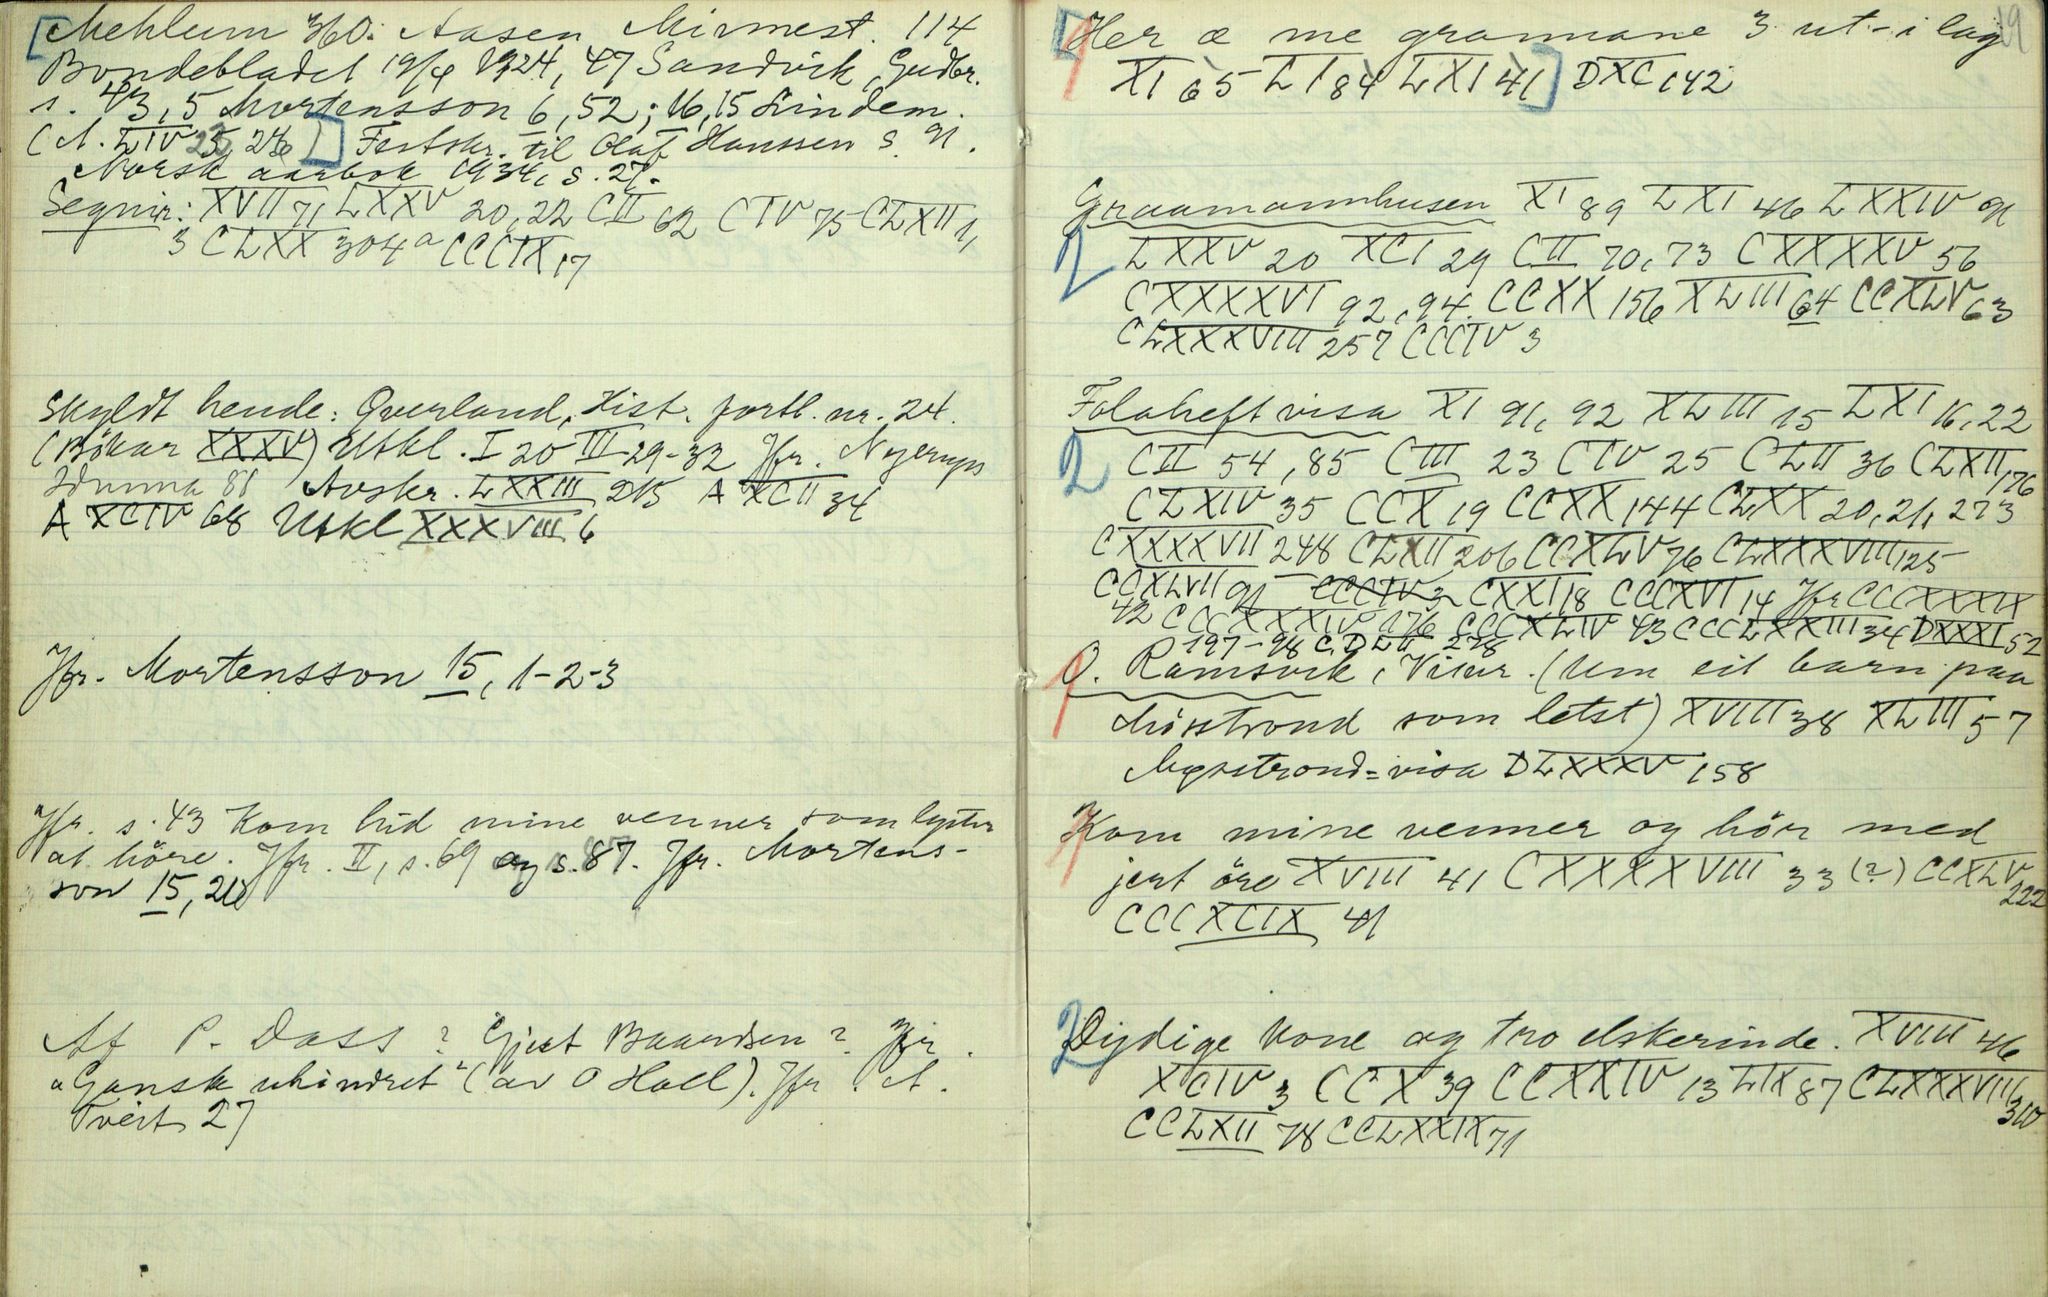 [Mehlum 360. Aasen Mirmest. 114
Bondebladet 19/4 1924, 47 Sandvik, Gudbr.
s. 43, 5 Mortensson 6, 52; 16, 15 Lindem.
(A. LIV 246)] Festskr. til Olaf Hanssen s. 91.
Norsk aarbok 1934, s. 27.
Segnir: XVII 71 LXXV 20, 22 CII 62 CIV 75 CLXII 1,
3 CLXX 304a CCCIX 17
Skyldt hende: Överland, Hist. fortl. nr. 24.
(Bökar XXXV) Utkl. I 20 III 29-32 Jfr. Nyerups
Idunna 81 Avskr. LXXIII 215 A XCII 34
A XCIV 68 Utkl XXXVIII 6
Jfr. Mortensson 15, 1-2-3
Jfr. s. 43 Kom hid mine venner som lyster
at höre. Jfr. II, s. 69 og s. 87. Jfr. Mortens-
son 15, 26
Af P. Dass? Gjert Baardsen? Jfr.
"Gansk uhindret" (av O Hall). Jfr. A.
Tveit 27
19
[Her æ me grannane 3 ut-i lag
XI 65 LI 84 LXI 41] DXC 142
Graamannhusen XI 89 LXI 46 LXXIV 91
2 LXXV 20 XCI 29 CII 70, 73 CXXXXV 56
CXXXXVI 92, 94. CCXX 156 XLIII 64 CCXLV 63
CLXXXVIII 257 CCCIV 3
Folaheftvisa XI 91, 92 XLIII 15 LXI 16, 22
2 CII 54, 85 CIII 23 CIV 25 CLII 36 CLXII 176
CLXIV 35 CCX 19 CCXX 144 CLXX 20, 21, 273
CXXXXVII 248 CLXII 206 CCXLV 76 CLXXXVIII 125
CCXLVII 91 CCCIV 3 CXXI 18 CCCXVI 14 Jfr CCCXXXIX
42 CCCXXXIV 176 CCCXLIV 43 CCCLXXIII 34 DXXXI 52
197-98 CDLII 278
1 O. Ramsvik, Visur. (Um eit barn paa
Mösstrond som letst) XVIII 38 XLIII 57
Mysstrond-visa DLXXXV 158
1 Kom mine venner og hör med
jert öre XVIII 41 CXXXXVIII 33 (?) CCXLV 222
CCCXCIX 41
2 Dydige kone og tro elskerinde. XVIII 46
XCIV 3 CCX 39 CCXXIV 13 LIX 87 CLXXXVIII 310
CCLXII 78 CCLXXIX 71